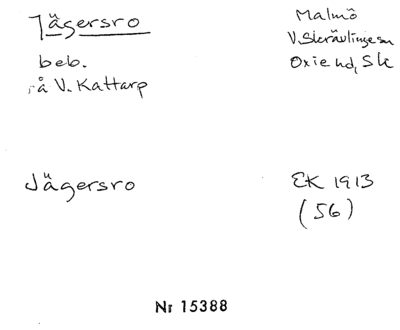 Jägersro
Malmö
V. Skrävlinge sn
Oxie hd, Sk
beb.
på V. Kattarp
Jägersro
EK 1913
(56)
Nr 15388